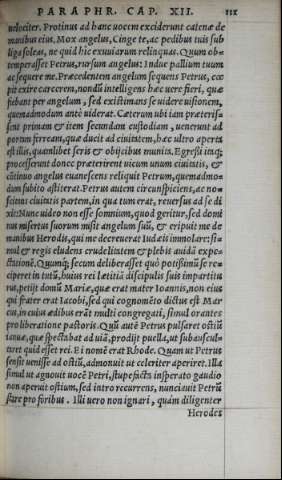 PARAPHR. CAP. XII. 111
uelociter. Protinus ad hanc uocem exciderunt catenæ de
manibus eius. Mox angelus, Cinge te, ac pedibus tuis sub
liga soleas, ne quid hic exuuiarum relinquas. Quum ob=
temperasset Petrus, rursum angelus: Indue pallium tuum
ac sequere me. Præcedentem angelum sequens Petrus, cœ
pit exire carcerem, nondū intelligens hæc uere fieri, quæ
fiebant per angelum, sed existimans se uidere uisionem,
quemadmodum antè uiderat. Cæterum ubi iam præteris=
sent primam & item secundam custodiam, uenerunt ad
portam ferream, quæ ducit ad ciuitatem, hæc ultro aperta
est illis, quamlibet seris & obijcibus munita. Egressi inq;
processerunt donec præterirent uicum unum ciuitatis, &
cōtinuo angelus euanescens reliquit Petrum, quemadmo=
dum subito astiterat. Petrus autem circunspiciens, ac no=
scitans ciuitatis partem, in qua tum erat, reuersus ad se di
xit: Nunc uideo non esse somnium, quod geritur, sed domi
nus misertus suorum misit angelum suū, & eripuit me de
manibus Herodis, qui me decreuerat Iudæis immolare: si=
mul & regis eludens crudelitatem & plebis auidā expe=
ctationē. Quumq; secum deliberasset quò potissimū se re
ciperet in tutū, huius rei lætitiā discipulis suis impartitu
rus, petijt domū Mariæ, quæ erat mater Ioannis, non eius
qui frater erat Iacobi, sed qui cognomēto dictus est Mar
cus, in cuius ædibus erāt multi congregati, simul orantes
pro liberatione pastoris. Quū autē Petrus pulsaret ostiū
ianuæ, quæ spectabat ad uiā, prodijt puella, ut subauscul=
taret quid esset rei. Ei nomē erat Rhode. Quæ ut Petrum
sensit uenisse ad ostiū, admonuit ut celeriter aperiret. Illa
simul ut agnouit uocē Petri, stupefacta insperato gaudio
non aperuit ostium, sed intro recurrens, nunciauit Petrū
stare pro foribus. Illi uero non ignari, quàm diligenter
Herodes